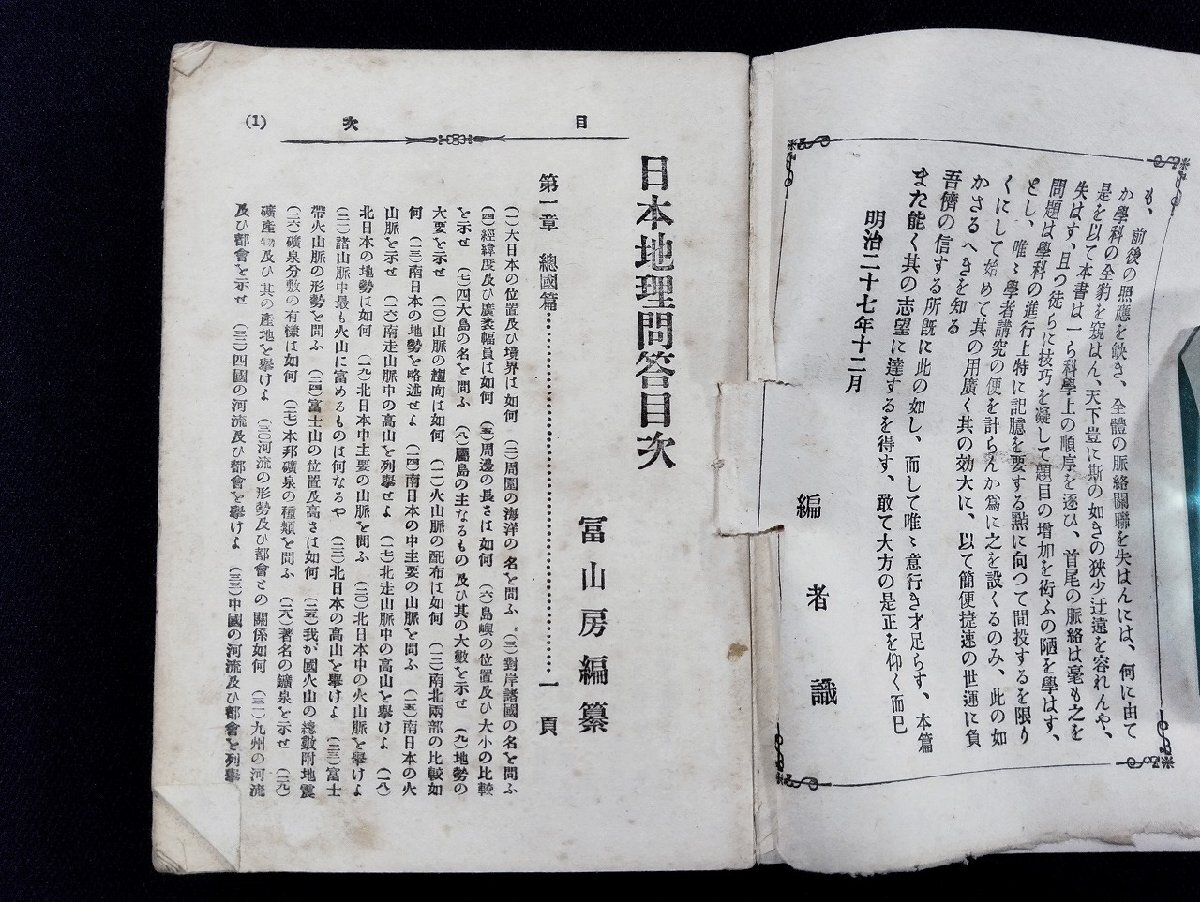 も、前後の照應を缺き、全體の脈絡關聯を失はんには、何に由て
か學科の全豹を窺はん、天下豈に斯の如きの狹少辻遠を容れんや、
是を以て本書は一ら科學上の順序を逐ひ、首尾の脈絡は毫も之を
失はず、且つ徒らに技巧を凝して題目の增加を衒ふの陋を學はず、
問題は學科の進行上特に記臆を要する點に向つて間投するを限り
とし、唯〻學者講究の便を計らんか爲に之を設くるのみ、此の如
くにして始めて其の用廣く其の効大に、以て簡便捷速の世運に負
かさるへきを知る
吾儕の信する所既に此の如し、而して唯〻意行き才足らす、本篇
また能く其の志望に達するを得す、敢て大方の是正を仰く而巳
明治二十七年十二月
編者識
目次
(1)
日本地理問答目次
冨山房編纂
第一章 總國篇……………………一頁
(一)大日本の位置及ひ境界は如何 (二)周圍の海洋の名を問ふ (三)對岸諸國の名を問ふ
(四)經緯度及ひ廣袤幅員は如何 (五)周邊の長さは如何 (六)島嶼の位置及ひ大小の比較
を示せ (七)四大島の名を問ふ (八)屬島の主なるもの及ひ其の大數を示せ (九)地勢の
大要を示せ (一〇)山脈の趨向は如何 (一一)火山脈の配布は如何 (一二)南北兩部の比較如
何 (一三)南日本の地勢を略述せよ (一四)南日本の中主要の山脈を問ふ (一五)南日本の火
山脈を示せ (一六)南走山脈中の高山を列擧せよ (一七)北走山脈中の高山を擧けよ (一八)
北日本の地勢は如何 (一九)北日本中主要の山脈を問ふ (二〇)北日本中の火山脈を擧けよ
(二一)諸山脈中最も火山に富めるものは何なるや (二二)北日本の高山を擧けよ (二三)富士
帶火山脈の形勢を問ふ (二四)富士山の位置及高さは如何 (二五)我が國火山の總數附地震
(二六)礦泉分敷の有樣は如何 (二七)本邦礦泉の種類を問ふ (二八)著名の鑛泉を示せ (二九)
礦產物及ひ其の產地を擧けよ (三〇)河流の形勢及ひ都會との關係如何 (三一)九州の河流
及ひ都會を示せ (三二)四國の河流及ひ都會を擧けよ (三三)中國の河流及ひ都會を列擧